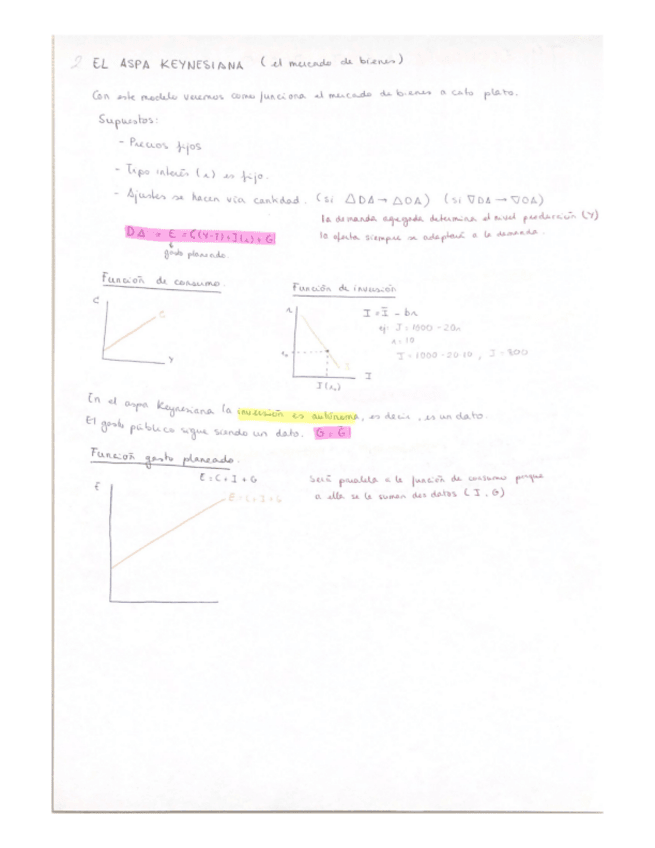 2 EL ASPA KEYNESIANA (el mercado de bienes)
Con este modelo veremos como funciona el mercado de bienes a corto plazo.
Supuestos:
- Precios fijos
- Tipo interés (r) es fijo.
- Ajustes se hacen vía cantidad. (si △DA → △OA) (si ▽DA → ▽OA)
la demanda agregada determina el nivel producción (Y)
la oferta siempre se adaptará a la demanda.
DA = E = C(Y-T)+I(r)+G
↓
gasto planeado.
Función de consumo.
Función de inversión
C
C
Y
r
r₀
I(r₀)
I
I = Ī - br
ej: I = 1000 - 20r
r = 10
I = 1000 - 20·10, I = 800
En el aspa Keynesiana la inversión es autónoma, es decir, es un dato.
El gasto público sigue siendo un dato. G = Ḡ
Función gasto planeado.
E = C + I + G
E
E = C + I + G
Será paralela a la función de consumo porque
a ella se le suman dos datos (I, G)